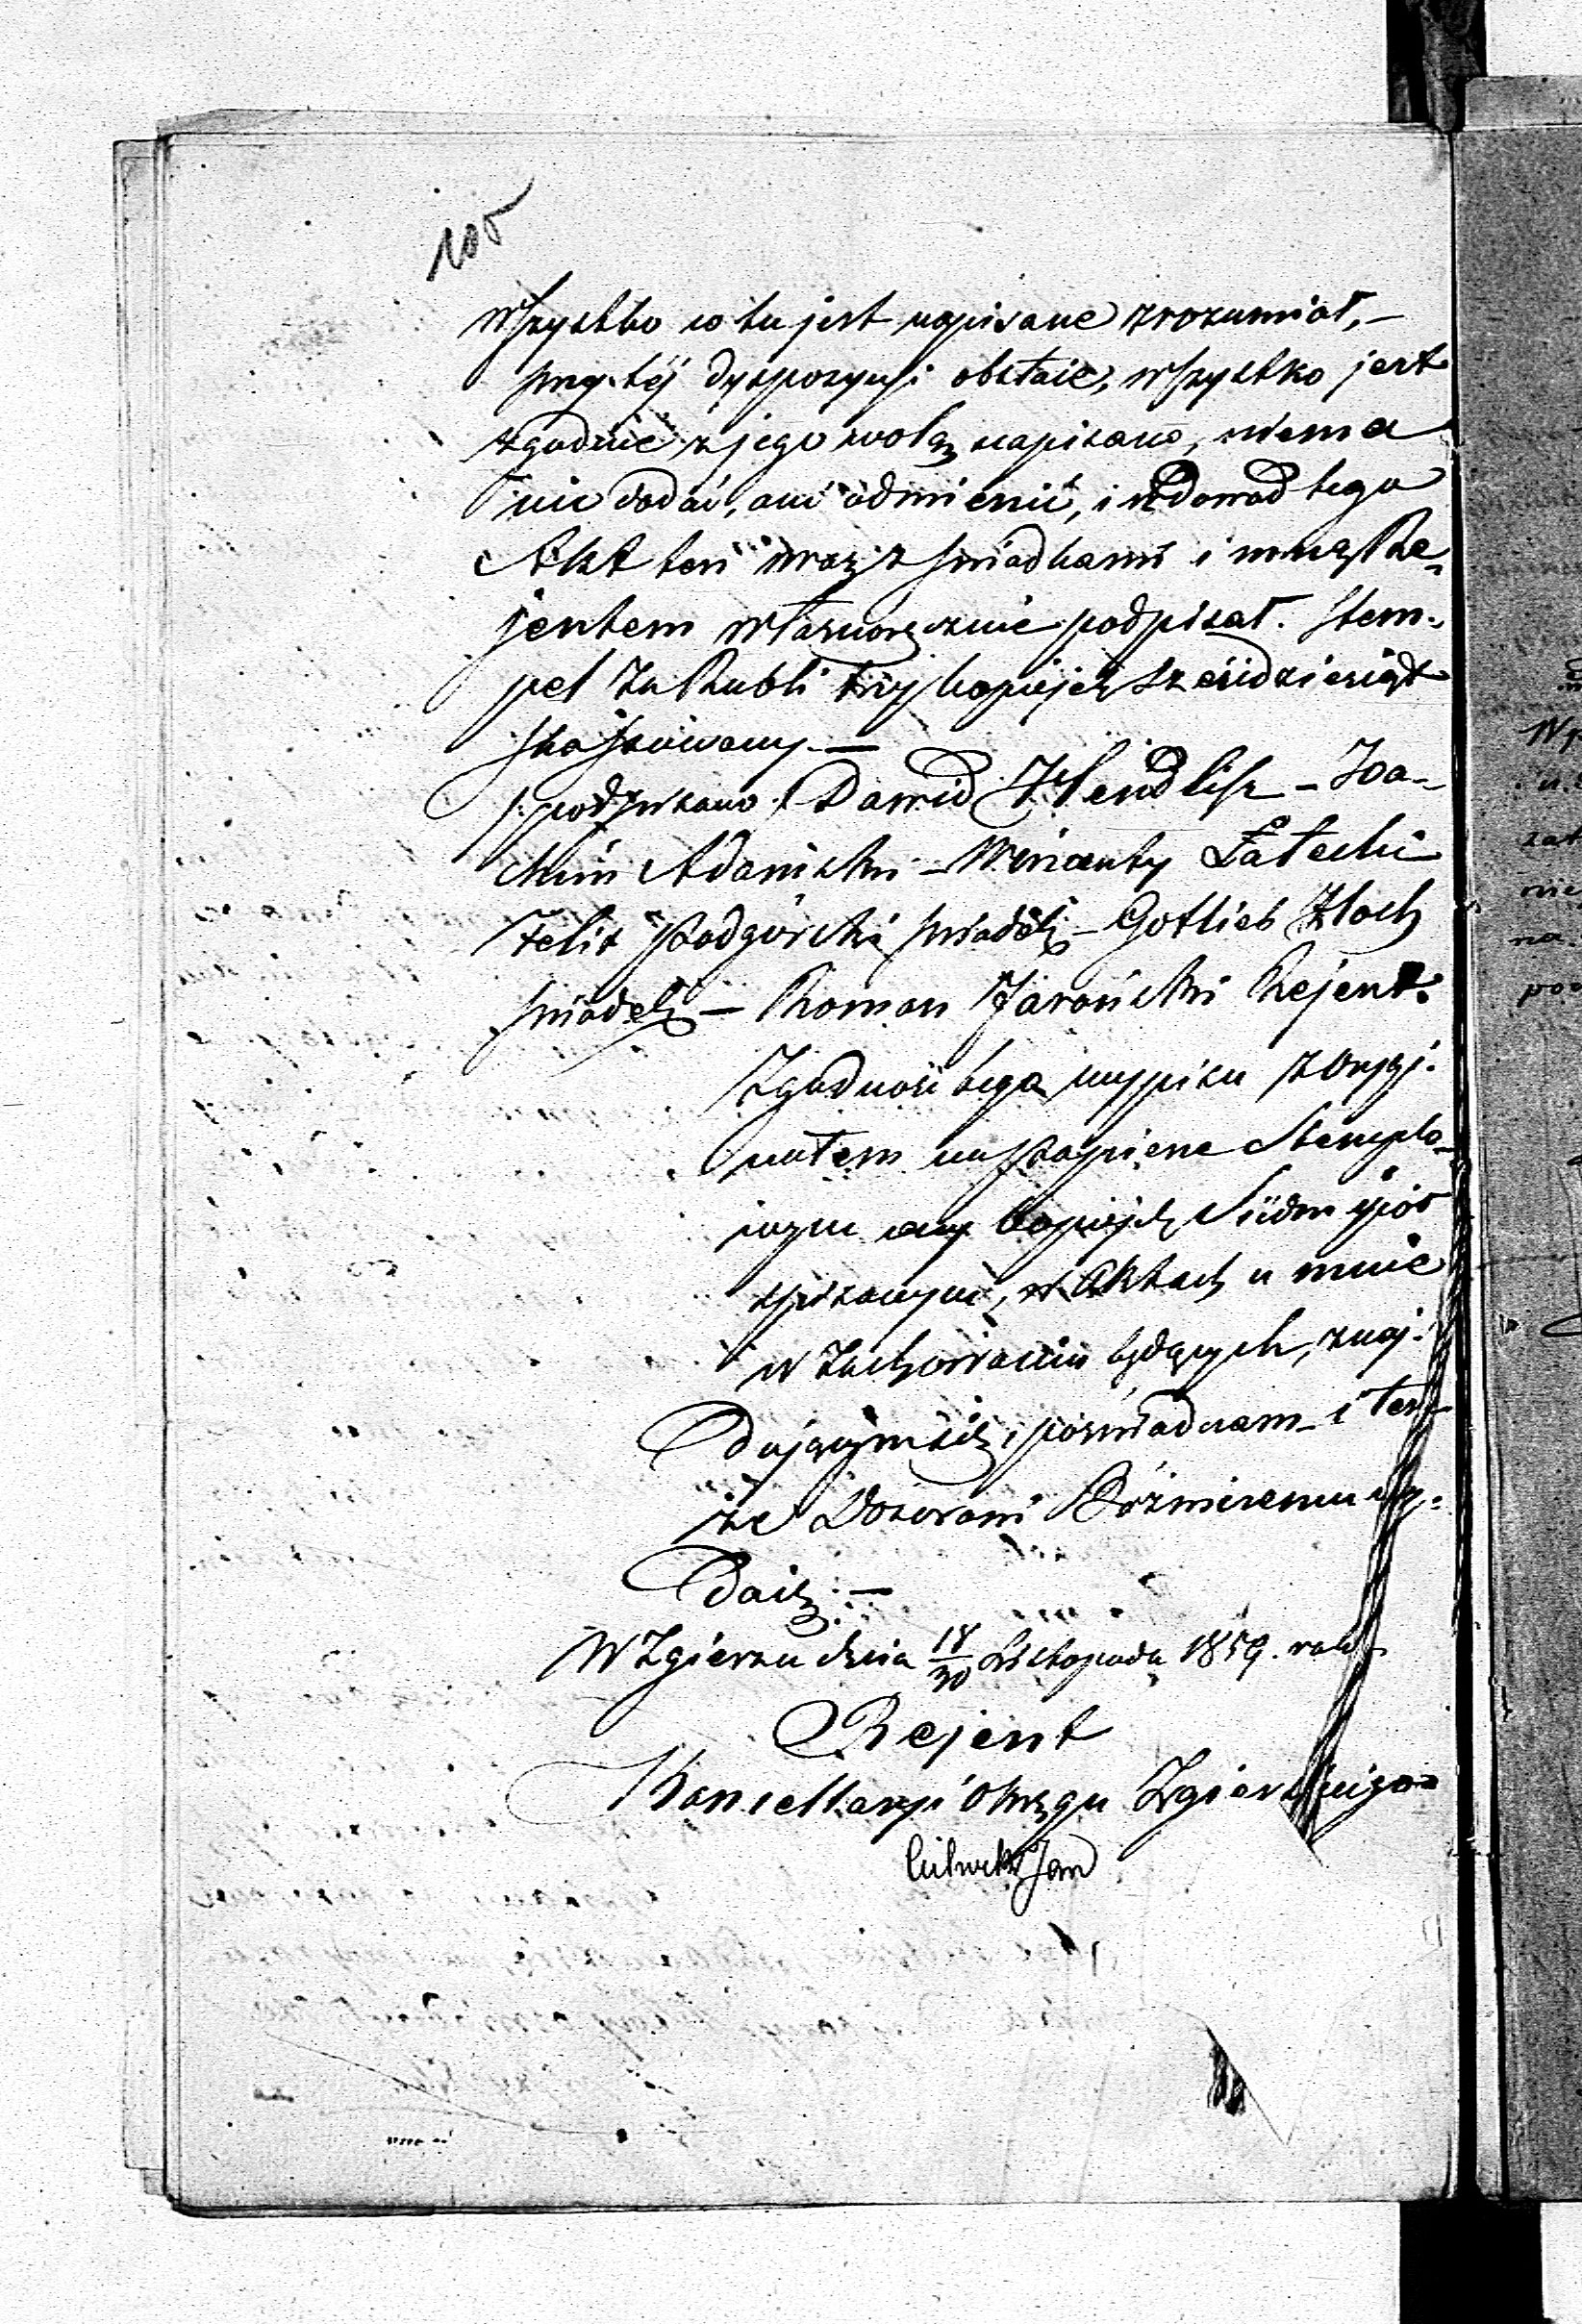 105
wszystko co tu jest napisane zrozumiał, –
przy téj dyspozycyi obstaie, wszystko jest
zgodnie z jego wolą napisano, niema
nic dodać, ani odmienić, i na dowod tego
Akt ten wraz z świadkami i mną Re-
jentem własnoręcznie podpisał. Stem-
pel za Rubli trzy kopiejek sześćdziesiąt
skassowany. —
/:podpisano:/ Dawid Hendlisz – Joa-
chim Adamski – Wincenty Łatecki
Felix Podgórski świadek – Gotlieb Zloch
świadek – Roman Jaroński Rejent.
Zgodność tego wypisu z orygi-
nałem na papierze stemplo-
wym ceny kopiejek siedm i pół
spisanym, w Aktach u mnie
w zachowaniu będących, znaj-
dującym się, poświadczam i ten-
że Dozorowi Bóżniczemu wy-
daię. —
W Zgierzu dnia 18/30 Listopada 1859. roku
Rejent
Kancellaryi Okręgu Zgierskiego
Jan